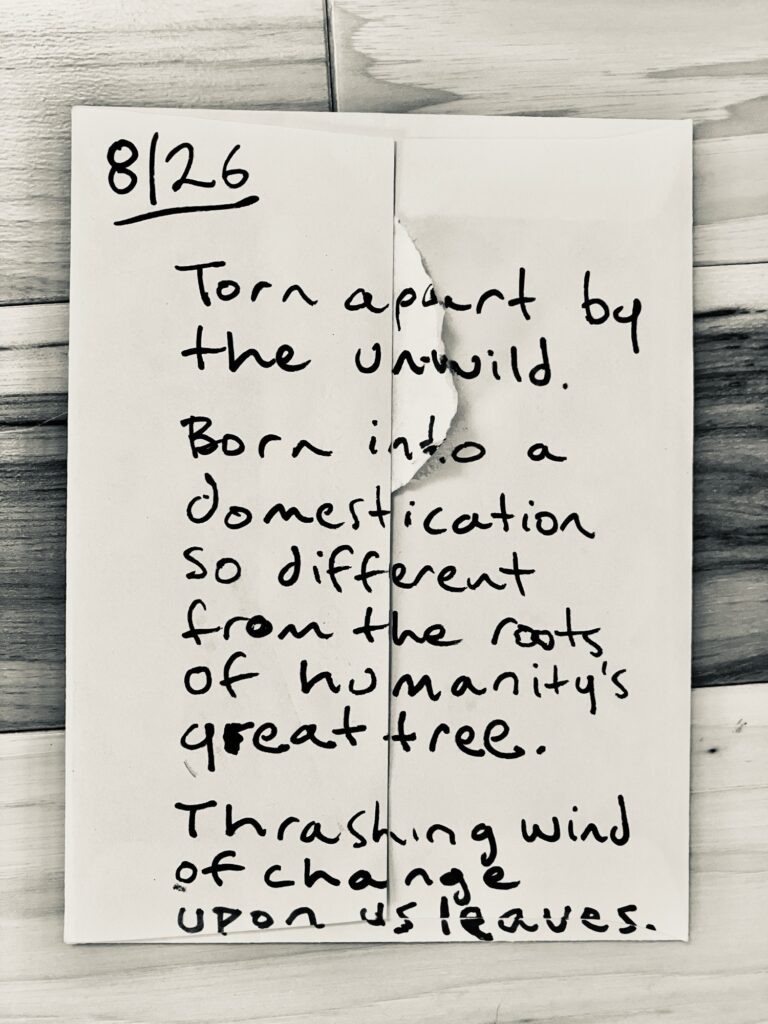 8/26
Torn apart by
the unwild.
Born into a
domestication
so different
from the roots
of humanity's
great tree.
Thrashing wind
of change
upon us leaves.